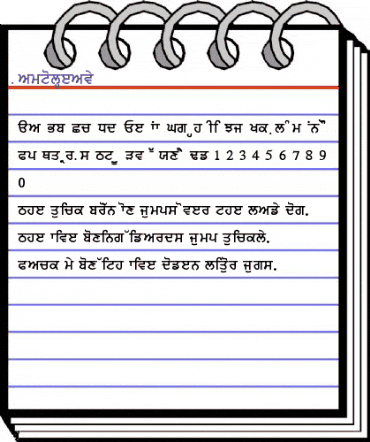 . ਅਮਟੋਲੂਏਅਵੇ
ੳਅ ਭਬ ਛਚ ਧਦ ਓੲ ਾਂ ਘਗ ੍ਹਹ ੀਿ ਝਜ ਖਕ ਲ਼ਲ ੰਮ ਂਨ ੌੋ
ਫਪ ਥਤ ੍ਰਰ ਸ਼ਸ ਠਟ ੂੁ ੜਵ ੱ ਯਣ ੈੇ ਢਡ 1 2 3 4 5 6 7 8 9
0
ਠਹੲ ਤੁਚਿਕ ਬਰੋੱਨ ੋਣ ਜੁਮਪਸ ੋਵੲਰ ਟਹੲ ਲਅਡੇ ਦੋਗ.
ਠਹੲ ਾਵਿੲ ਬੋਣਨਿਗ ੱਡਿਅਰਦਸ ਜੁਮਪ ਤੁਚਿਕਲੇ.
ਫਅਚਕ ਮੇ ਬੋਣ ੱਟਿਹ ਾਵਿੲ ਦੋਡੲਨ ਲਤਿੁੋਰ ਜੁਗਸ.